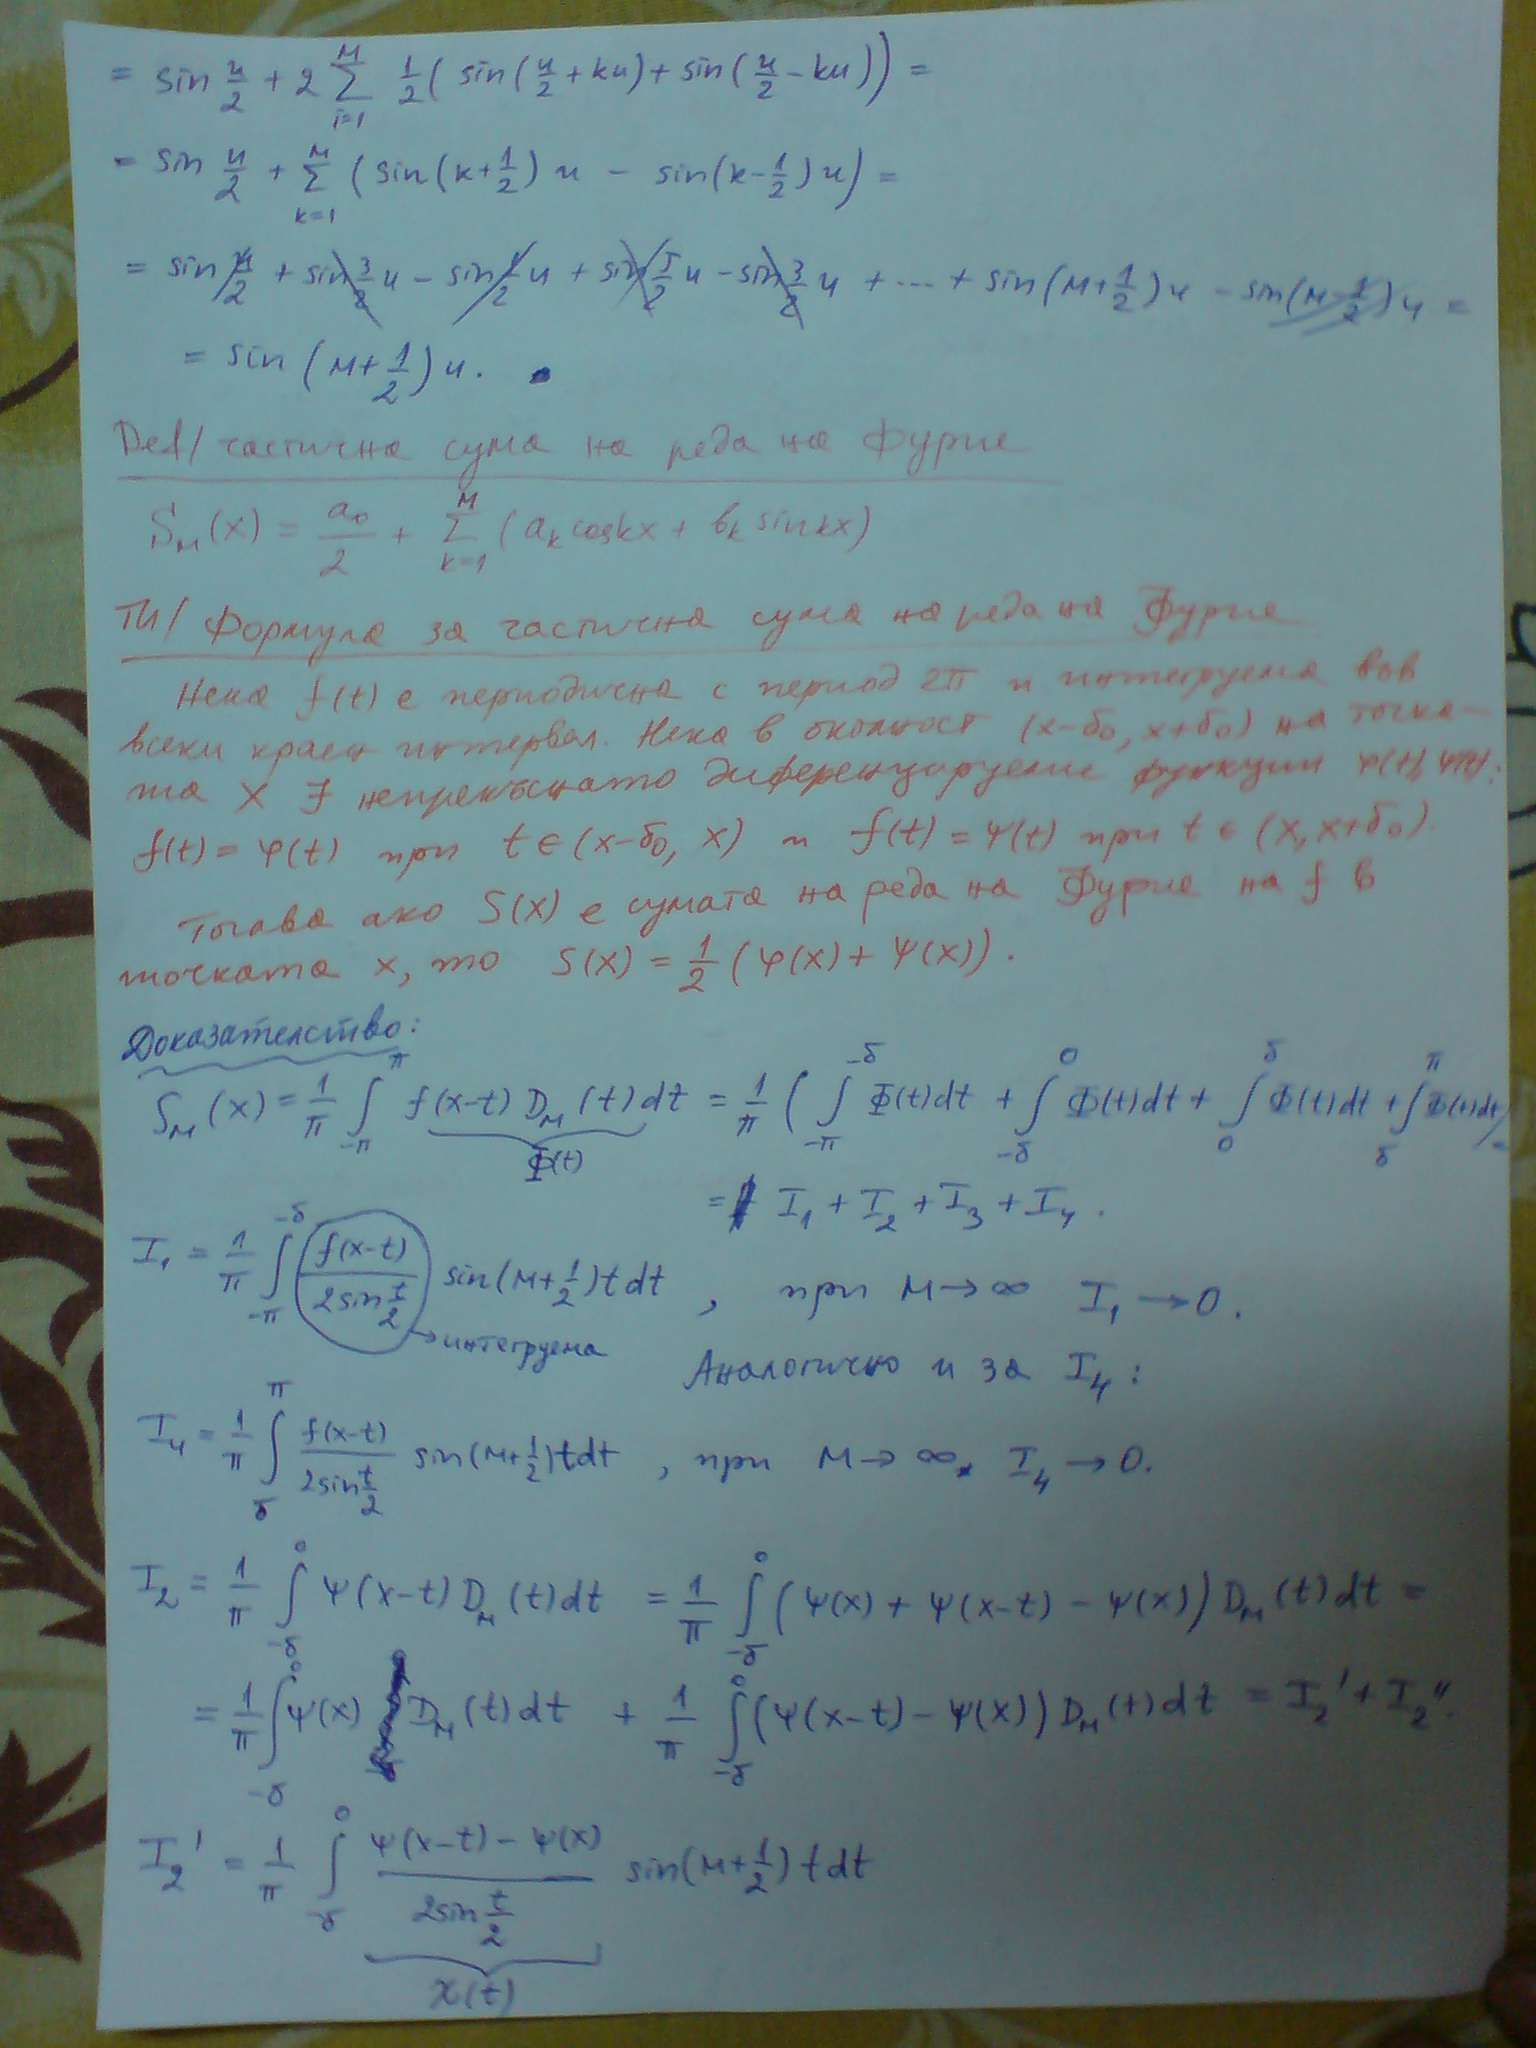 = sin u/2 + 2 ∑_{i=1}^{M} 1/2 ( sin(u/2 + ku) + sin(u/2 - ku)) =
= sin u/2 + ∑_{k=1}^{M} (sin(k+1/2)u - sin(k-1/2)u) =
= sin u/2 + sin 3/2 u - sin 1/2 u + sin 5/2 u - sin 3/2 u + ... + sin(M+1/2)u - sin(M-1/2)u =
= sin (M+1/2)u.
Def/ частична сума на реда на Фурие
S_M(x) = a_0/2 + ∑_{k=1}^{M} (a_k cos kx + b_k sin kx)
TH/ Формула за частична сума на реда на Фурие
Нека f(t) е периодична с период 2π и интегруема във
всеки краен интервал. Нека в околност (x-δ_0, x+δ_0) на точка-
та x ∃ непрекъснато диференцируеми функции φ(t), ψ(t):
f(t) = φ(t) при t ∈ (x-δ_0, x) и f(t) = ψ(t) при t ∈ (x, x+δ_0).
Тогава ако S(x) е сумата на реда на Фурие на f в
точката x, то S(x) = 1/2 (φ(x) + ψ(x)).
Доказателство:
S_M(x) = 1/π ∫_{-π}^{π} f(x-t) D_M(t) dt = 1/π ( ∫_{-π}^{-δ} Φ(t)dt + ∫_{-δ}^{0} Φ(t)dt + ∫_{0}^{δ} Φ(t)dt + ∫_{δ}^{π} Φ(t)dt) =
Φ(t)
= I_1 + I_2 + I_3 + I_4.
I_1 = 1/π ∫_{-π}^{-δ} f(x-t)/(2sin t/2) sin(M+1/2)t dt, при M → ∞ I_1 → 0.
→ интегруема
Аналогично и за I_4:
I_4 = 1/π ∫_{δ}^{π} f(x-t)/(2sin t/2) sin(M+1/2)t dt, при M → ∞ I_4 → 0.
I_2 = 1/π ∫_{-δ}^{0} ψ(x-t) D_M(t) dt = 1/π ∫_{-δ}^{0} (ψ(x) + ψ(x-t) - ψ(x)) D_M(t) dt =
= 1/π ∫_{-δ}^{0} ψ(x) D_M(t) dt + 1/π ∫_{-δ}^{0} (ψ(x-t) - ψ(x)) D_M(t) dt = I_2' + I_2''.
I_2' = 1/π ∫_{-δ}^{0} (ψ(x-t) - ψ(x))/(2sin t/2) sin(M+1/2)t dt
χ(t)